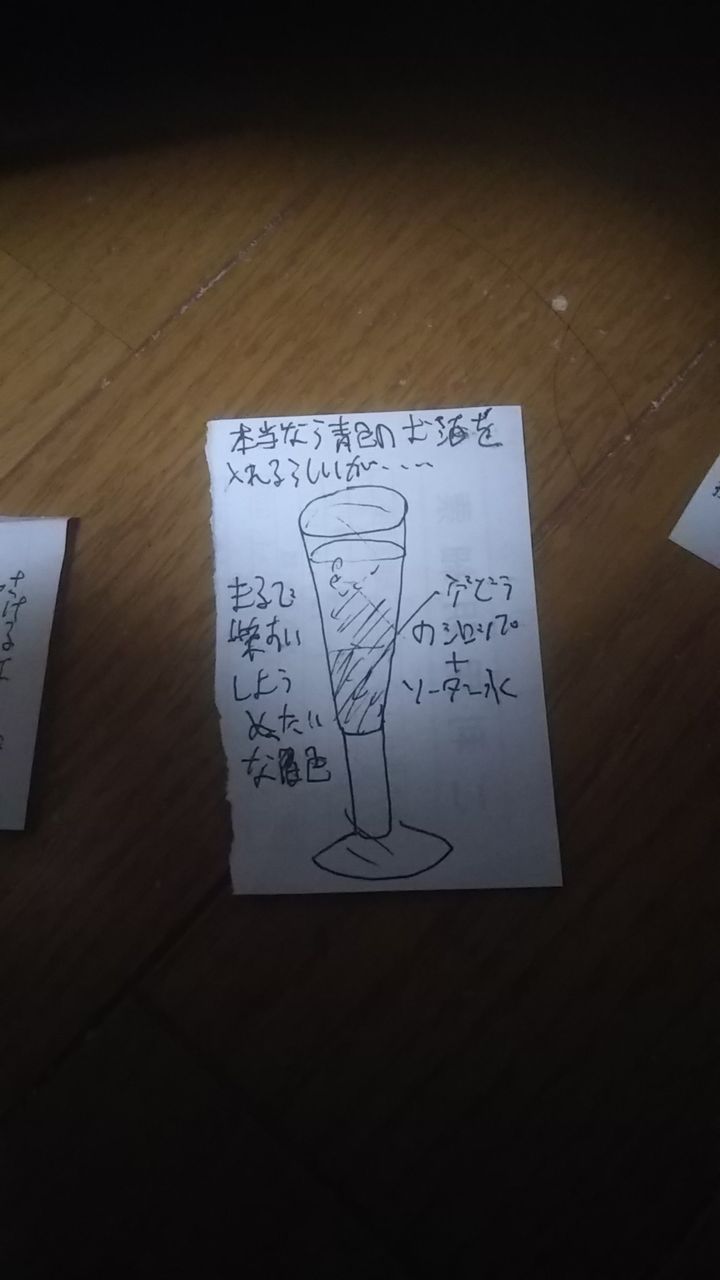 本当なら青色のお酒を
入れるらしいが....
まるで
紫すい
しよう
みたい
な色
ぶどう
のシロップ
+
ソーダー水
ける